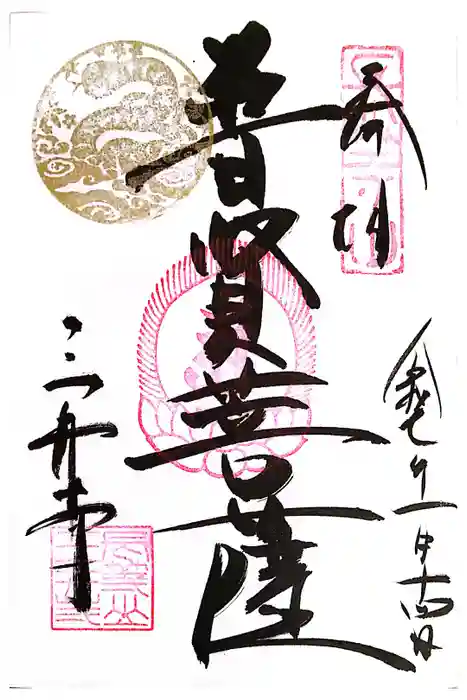 奉拝
普賢菩薩
令和七年一月十四日
三井寺